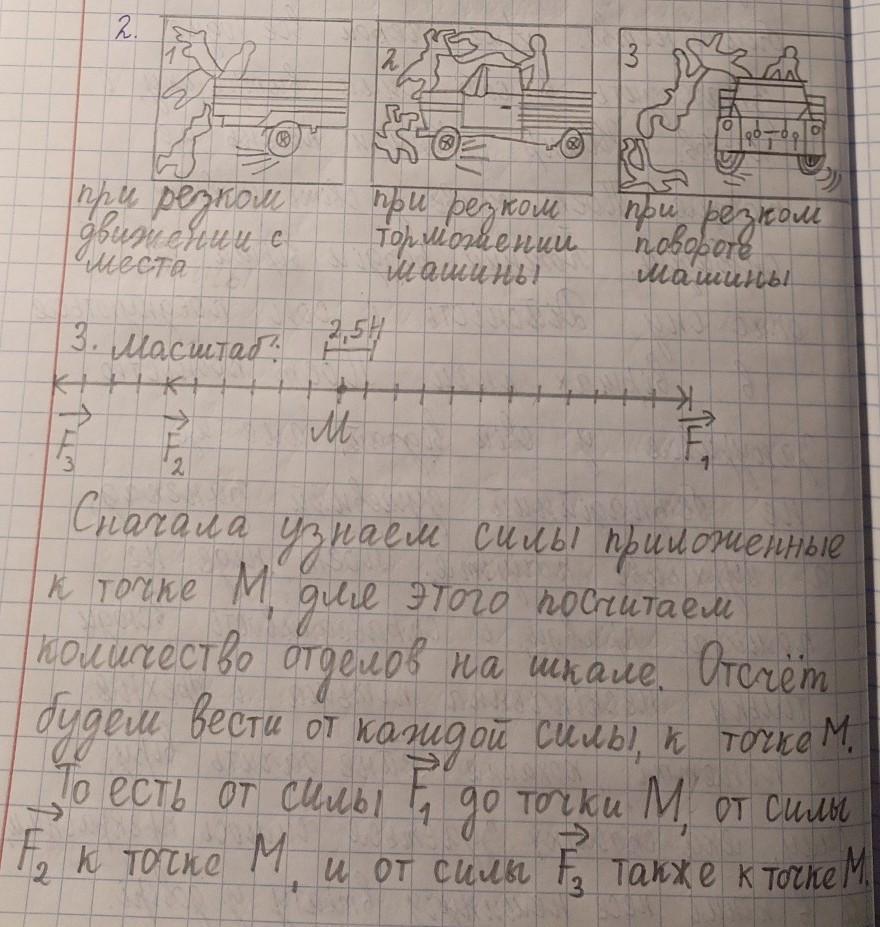 2.
1
2
3
при резком
движении с
места
при резком
торможении
машины
при резком
повороте
машины
3. Масштаб: 2,5Н
F₃ F₂ М F₁
Сначала узнаем силы приложенные
к точке М, для этого посчитаем
количество отделов на шкале. Отсчёт
будем вести от каждой силы, к точке М.
То есть от силы F₁ до точки М, от силы
F₂ к точке М, и от силы F₃ также к точке М.